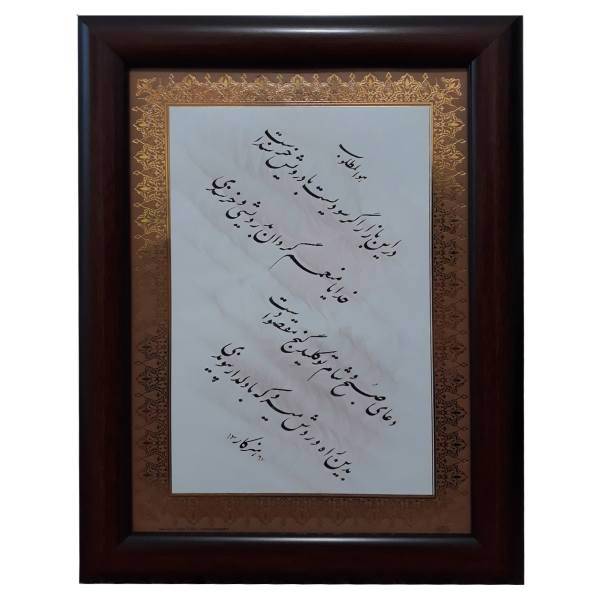 هوالمطلوب
دراین بازار اگر سودیست با درویش خرسندست
خدایا منعمم گردان به درویشی و خرسندی
دعای صبح و شام تو کلید گنج مقصودست
بدین راه و روش میرو که با دلدار پیوندی
هنرکار